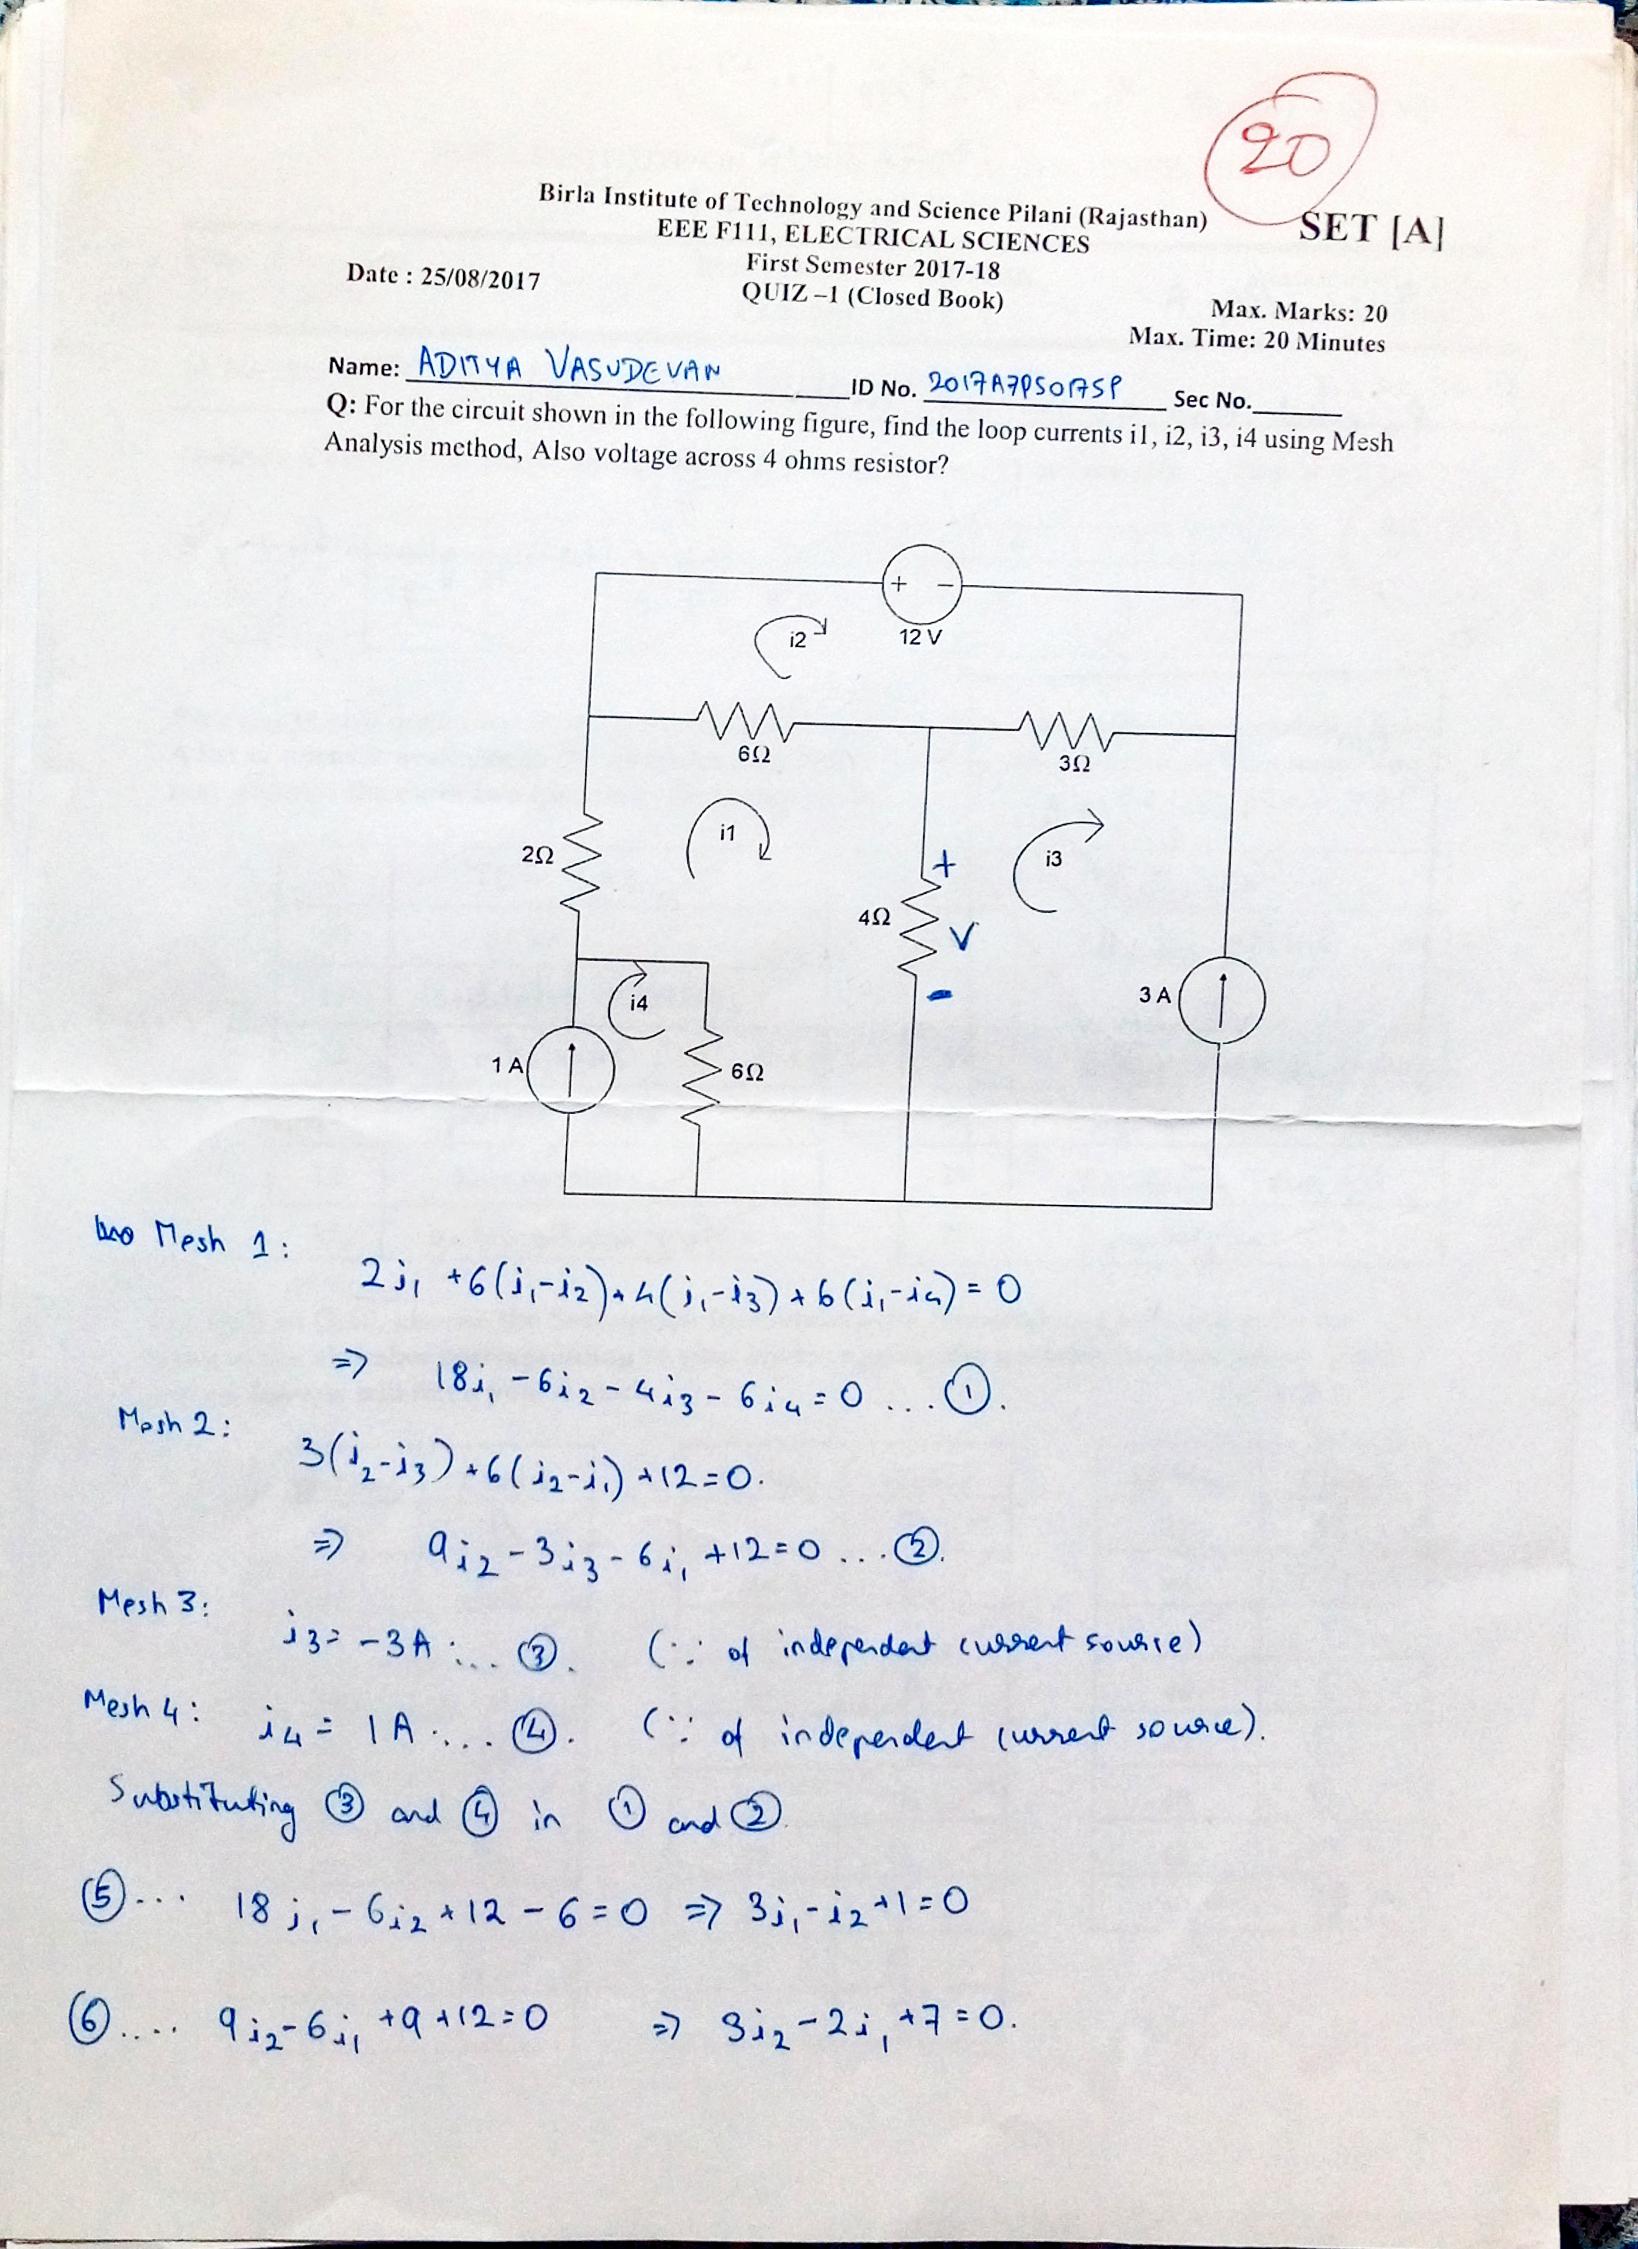 20
Birla Institute of Technology and Science Pilani (Rajasthan)
SET [A]
EEE F111, ELECTRICAL SCIENCES
First Semester 2017-18
Date : 25/08/2017
QUIZ –1 (Closed Book)
Max. Marks: 20
Max. Time: 20 Minutes
Name: ADITYA VASUDEVAN ID No. 2017A7PS0175P Sec No.
Q: For the circuit shown in the following figure, find the loop currents i1, i2, i3, i4 using Mesh
Analysis method, Also voltage across 4 ohms resistor?
+ −
i2
12 V
6Ω
3Ω
i1
2Ω
i3
+
4Ω
V
-
i4
3 A
1 A
6Ω
Mesh 1:
2i₁ +6(i₁-i₂)+4(i₁-i₃)+6(i₁-i₄)=0
⇒ 18i₁ -6i₂ -4i₃ -6i₄=0 ... ①.
Mesh 2:
3(i₂-i₃)+6(i₂-i₁)+12=0.
⇒ 9i₂ -3i₃ -6i₁ +12=0 ... ②.
Mesh 3:
i₃= -3A ... ③. (∵ of independent current source)
Mesh 4: i₄ = 1A ... ④. (∵ of independent current source).
Substituting ③ and ④ in ① and ②.
⑤... 18i₁ -6i₂ +12 -6=0 ⇒ 3i₁ -i₂ +1=0
⑥.... 9i₂ -6i₁ +9 +12=0 ⇒ 3i₂ -2i₁ +7=0.